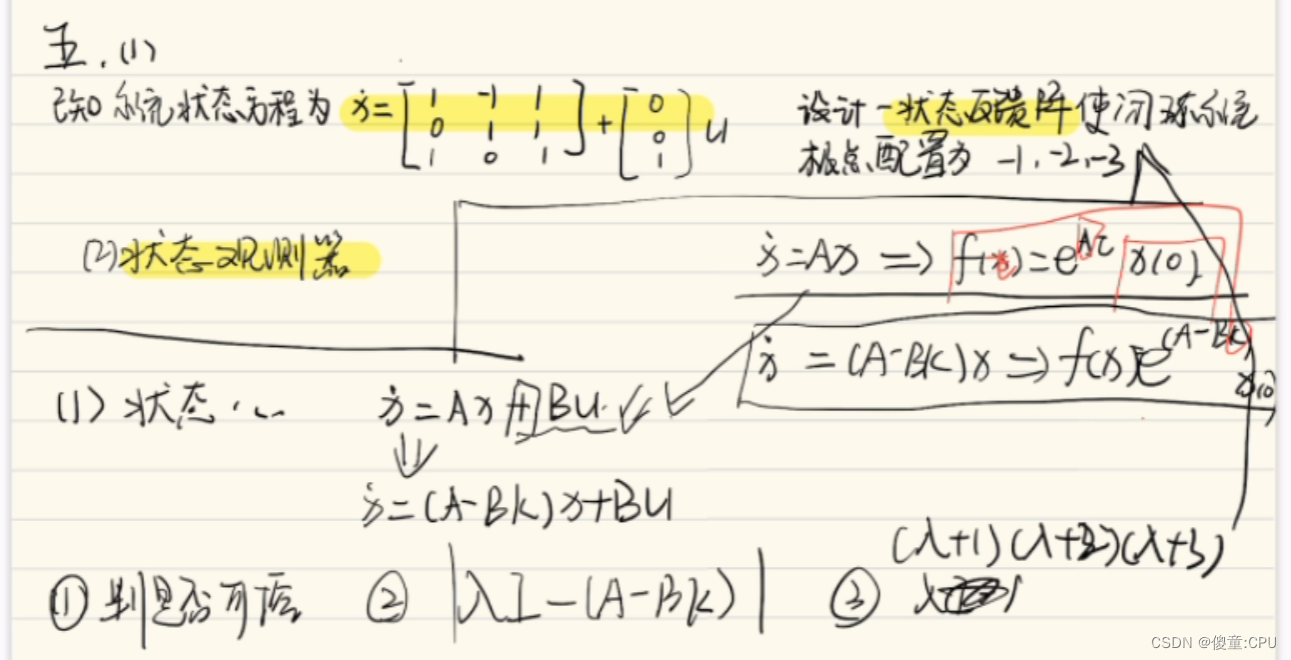 五.(1)
已知系统状态方程为 ẋ=[1 -1 1; 0 1 1; 1 0 1]+[0; 0; 1]u
设计一状态反馈阵使闭环系统
极点配置为 -1,-2,-3
(2)状态观测器
ẋ=Ax => f(x)=e^{Aτ} x(0)
ẋ=(A-Bk)x => f(x)e^{(A-Bk)} x(0)
(1)状态... ẋ=Ax+Bu
ẋ=(A-Bk)x+Bu
(λ+1)(λ+2)(λ+3)
①判是否可 ② |λI-(A-Bk)| ③
CSDN @傻童:CPU